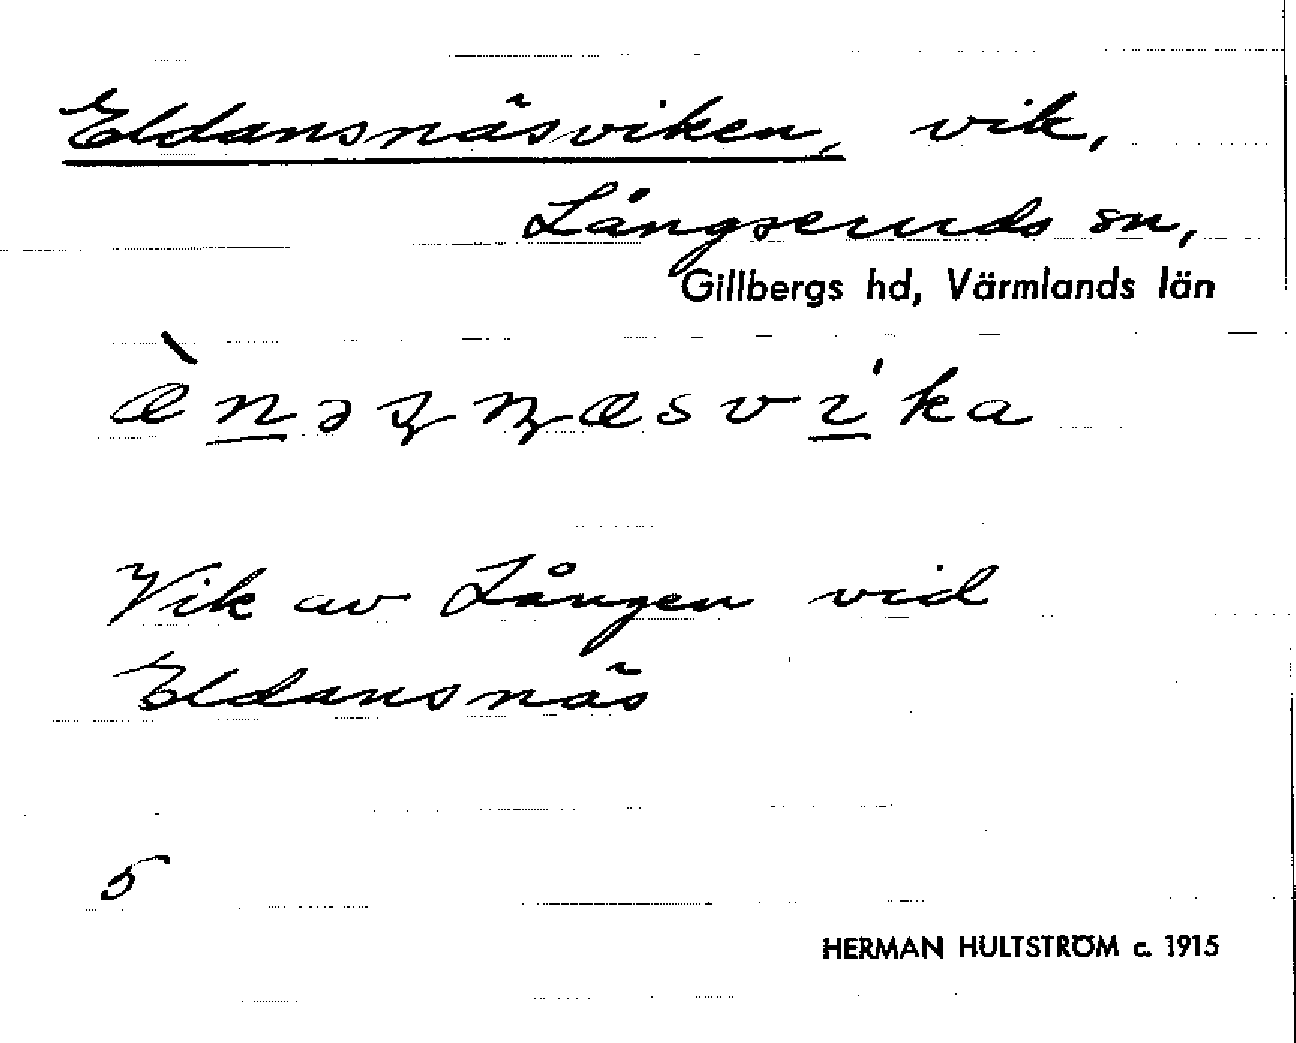 Eldansnäsviken, vik,
Långseruds sn,
Gillbergs hd, Värmlands län
æ̀nəʂɳæsvíka
Vik av Lången vid
Eldansnäs
5
HERMAN HULTSTRÖM c. 1915